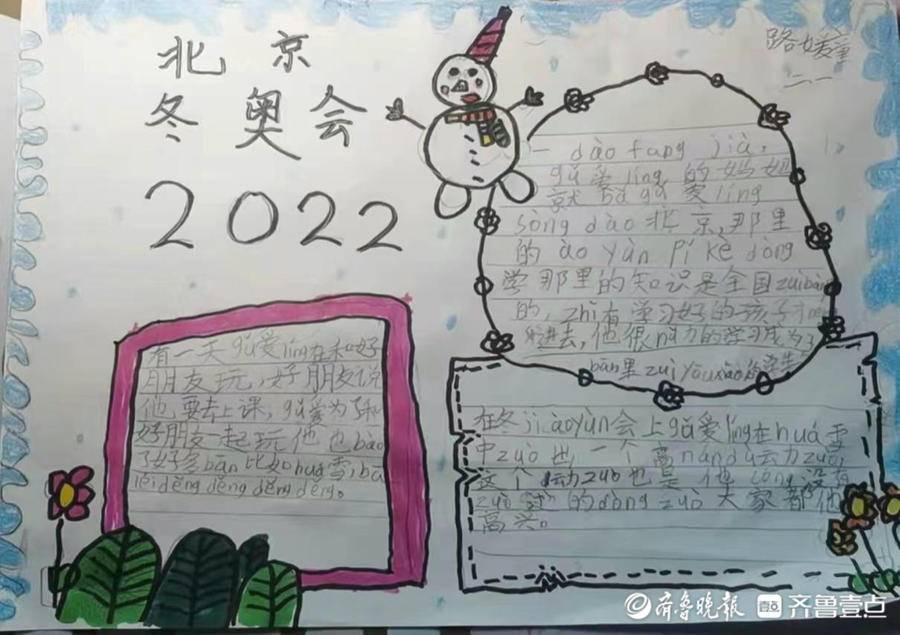 北京
冬奥会
2022
路媛童
二一
一 dào fang jià,
gǔ爱líng 的妈妈
就bǎ gǔ爱líng
sòng dào北京,那里
的 ào yùn pí kè dòng
学那里的知识是全国zuì bàng
的, zhǐ有学习好的孩子才
进去,他很nǔ力的学习成为了
bān里 zuì yōu xiù
有一天gǔ爱líng在和好
朋友玩,好朋友说
他要去上课, gǔ爱为了和
好朋友一起玩他也bào
了好多bān比如huá雪bā
lěi děng děng děng děng。
在冬jì ào yùn会上gǔ爱líng在huá雪
中zuò也一个高nán dù动zuò
这个动zuò也是他cóng没有
zuò过的dòng zuò大家都他
高兴。
齐鲁晚报 齐鲁壹点